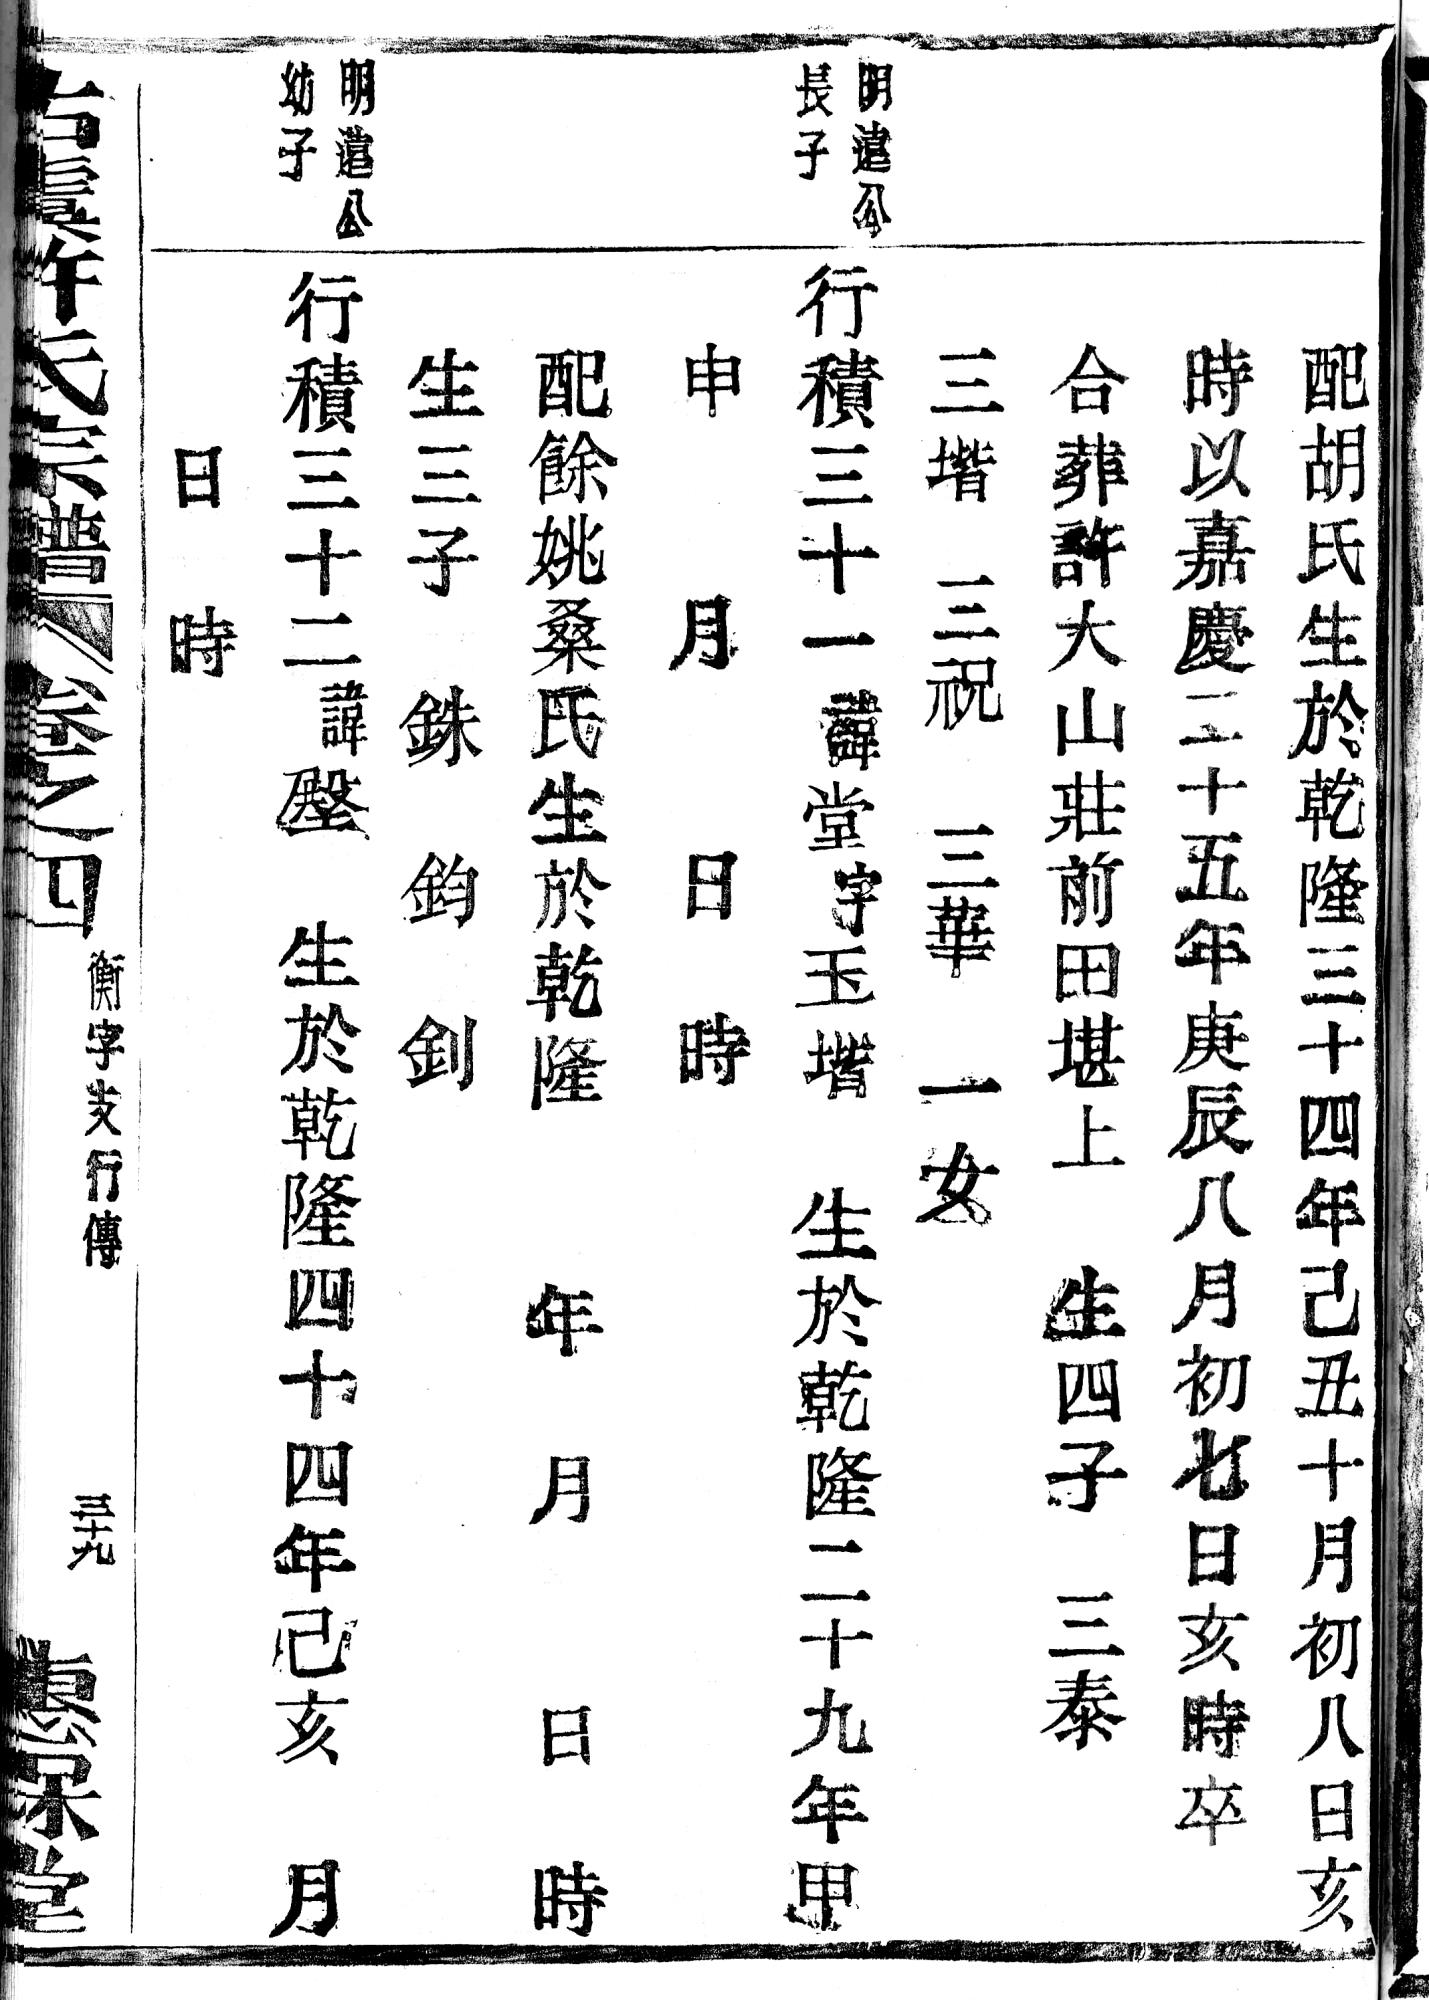 配胡氏生於乾隆三十四年己丑十月初八日亥
時以嘉慶二十五年庚辰八月初七日亥時卒
合葬許大山莊前田堪上 生四子 三泰
三堦 三祝 三華 一女
明遠公
長子
行積三十一諱堂字玉堦 生於乾隆二十九年甲
申 月 日 時
配餘姚桑氏生於乾隆 年 月 日 時
生三子 銖 鈞 釗
明遠公
幼子
行積三十二諱 生於乾隆四十四年己亥 月
日 時
古虞許氏宗譜 卷之四 衡字支行傳 三十九 惠保堂